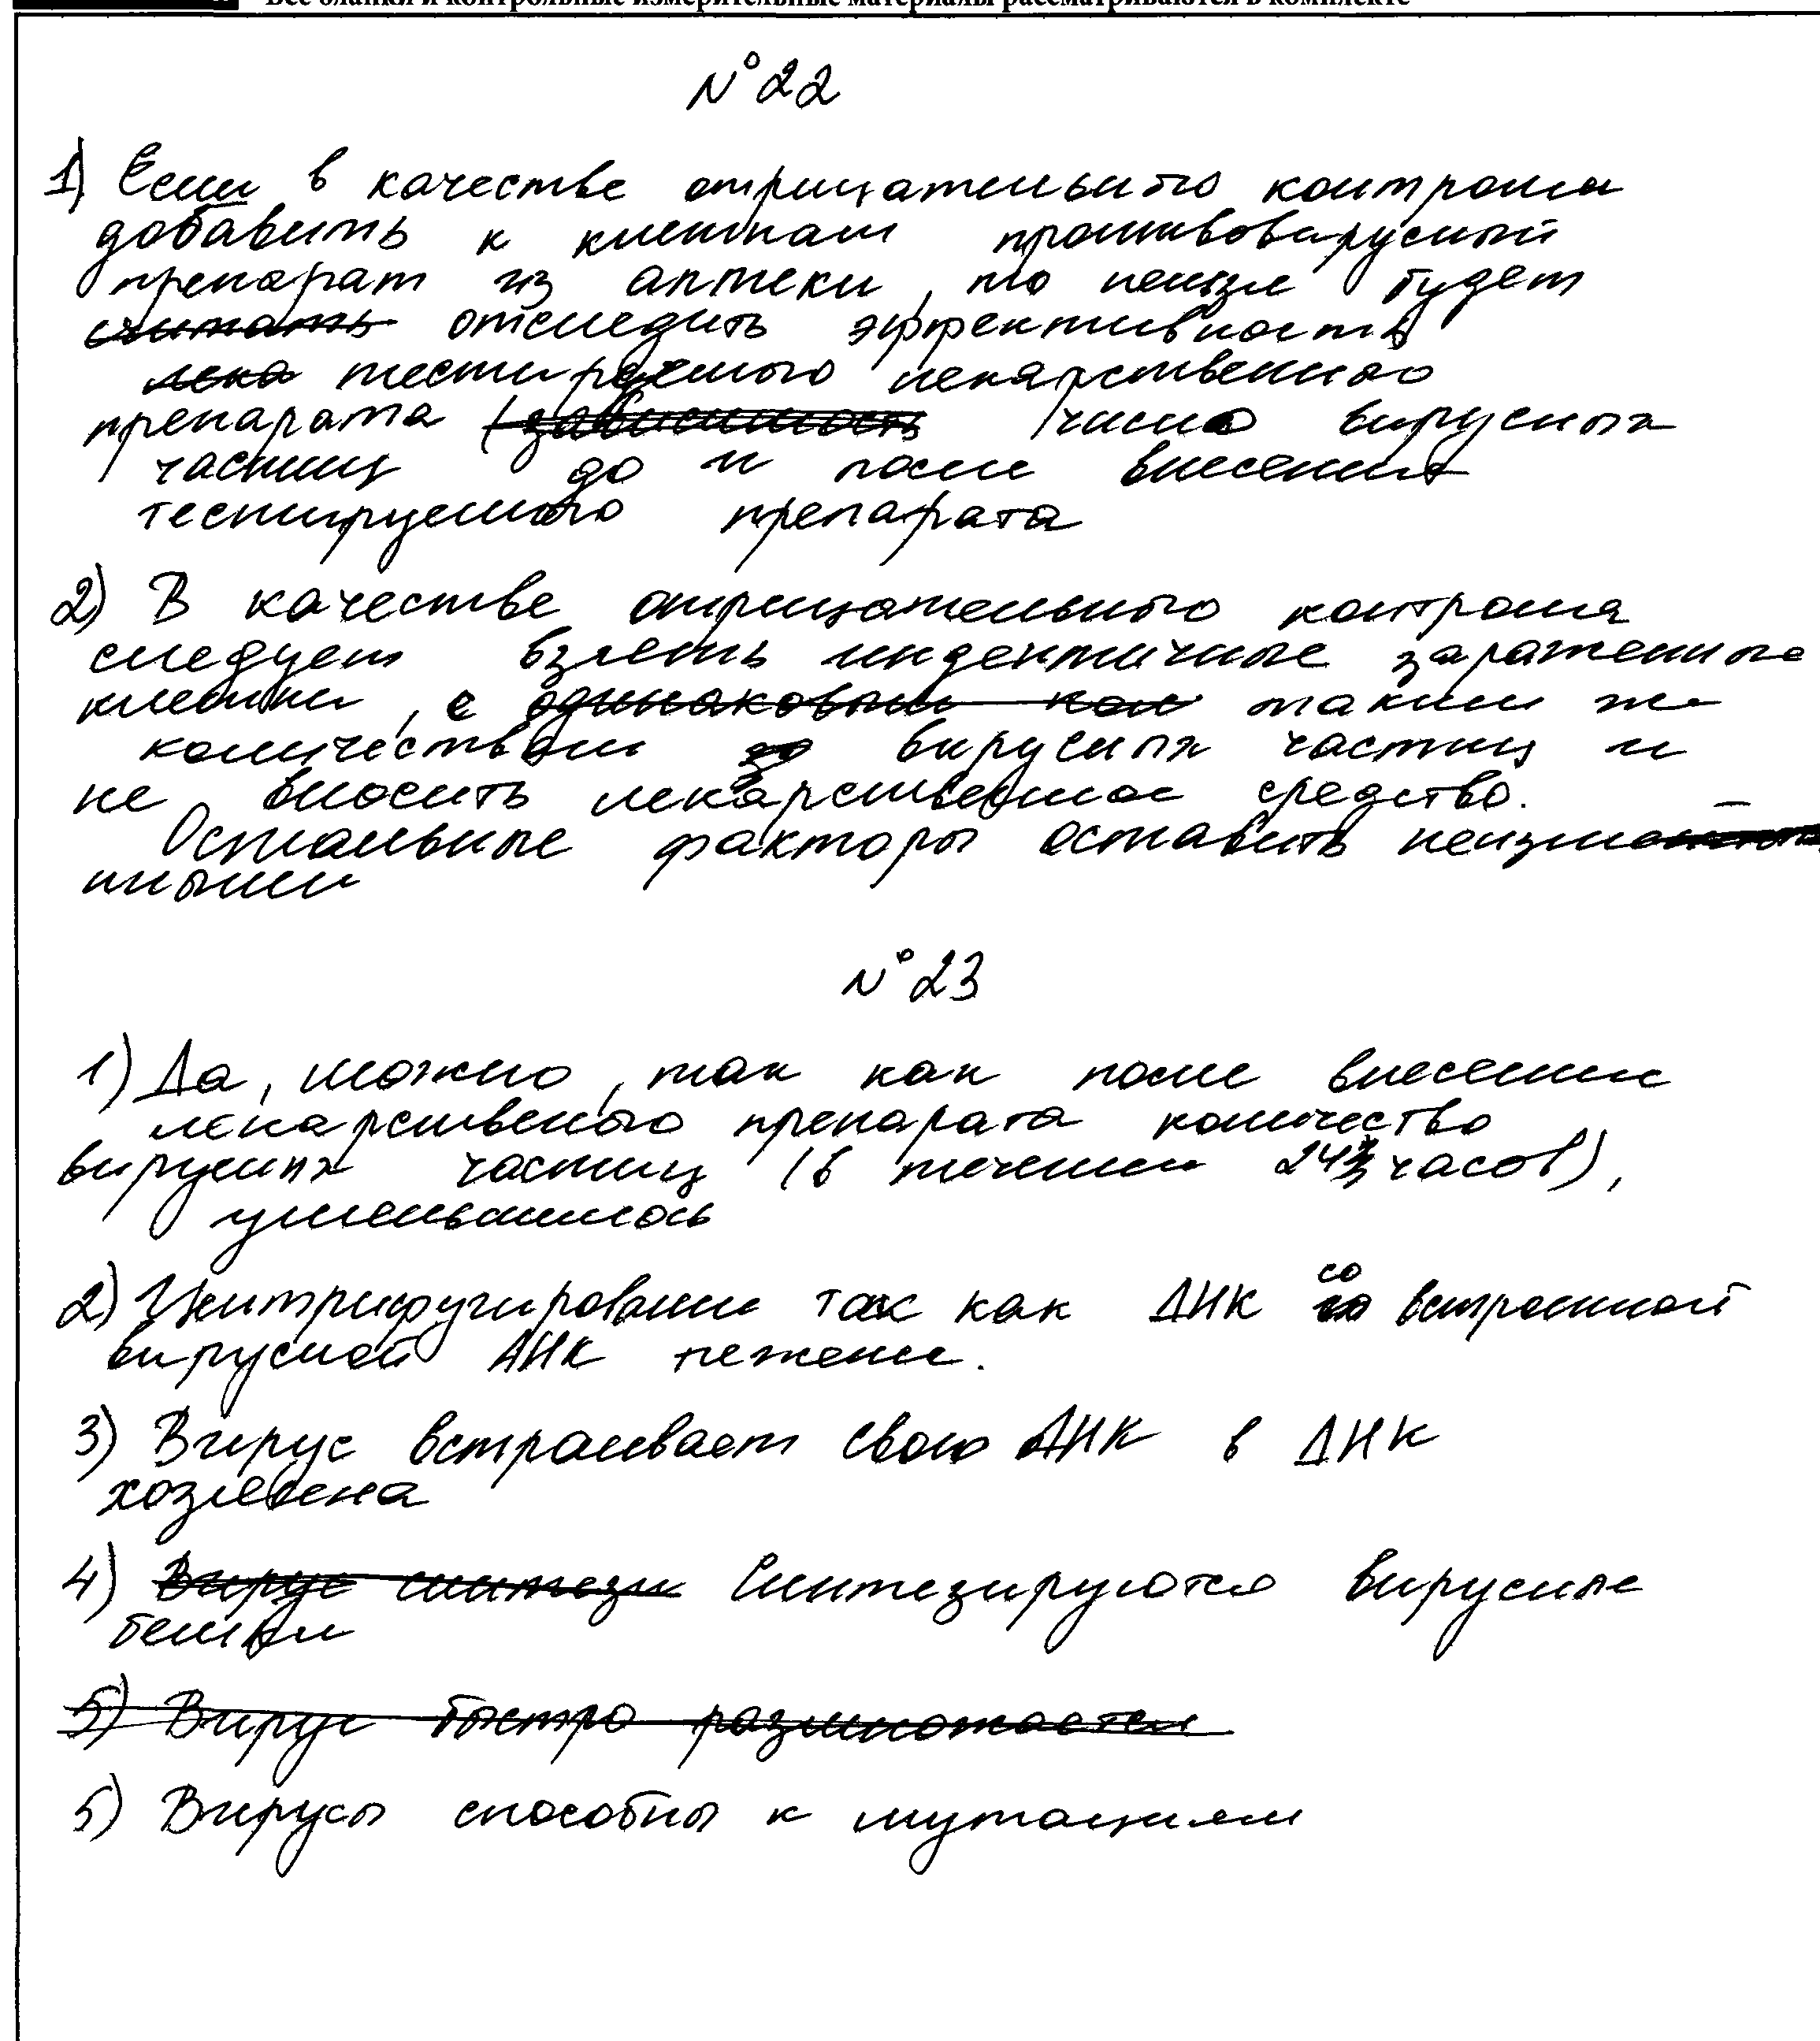 Все бланки и контрольные измерительные материалы рассматриваются в комплекте
№22
1) Если в качестве отрицательного контроля
добавить к клеткам противовирусный
препарат из аптеки, то нельзя будет
считать отследить эффективность
лека тестируемого лекарственного
препарата (зависимость число вирусных
частиц до и после внесения
тестируемого препарата
2) В качестве отрицательного контроля
следует взять индентичные зараженные
клетки, с одинаковым кол таким же
количеством вирусных частиц и
не вносить лекарственное средство.
Остальные факторы оставить неизме-
нными
№23
1) Да, можно, так как после внесения
лекарственого препарата количество
вирусных частиц (в течении 24 часов),
уменьшилось
2) Центрифугирование так как ДНК со встроенной
вирусной ДНК тяжелее.
3) Вирус встраивает свою ДНК в ДНК
хозяевена
4) Вирус синтези Синтезируются вирусные
белки
5) Вирус быстро размножается
5) Вирусы способны к мутациям